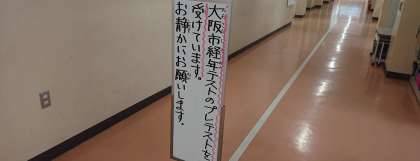 大阪市経年テストのプレテストを
受けています。
お静かにお願いします。